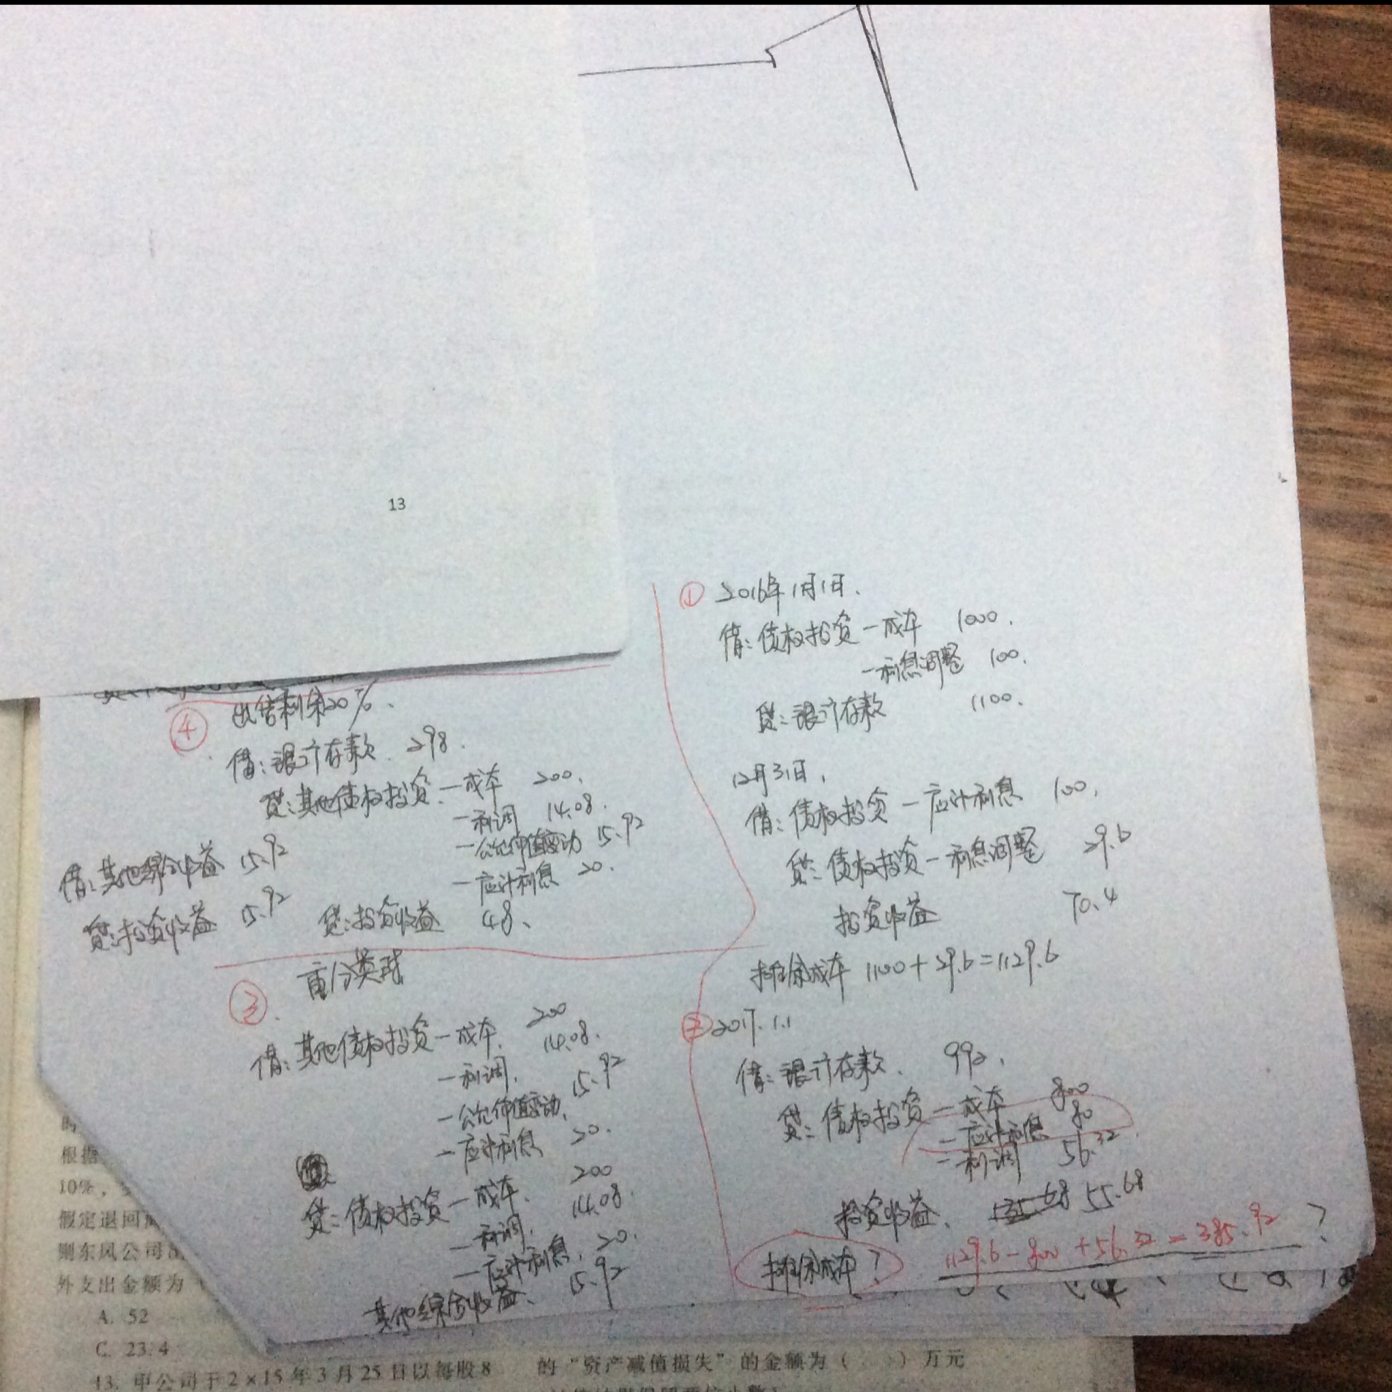 13
① 2016年1月1日.
借: 债权投资—成本 1000.
—利息调整 100.
贷: 银行存款 1100.
12月31日.
借: 债权投资—应计利息 100.
贷: 债权投资—利息调整 29.6
投资收益 70.4
摊余成本 1100+29.6=1129.6
② 2017.1.1
借: 银行存款. 992.
贷: 债权投资—成本 800
—应计利息 80
—利调 56.32.
投资收益. 55.68
摊余成本? 1129.6-800+56.32=385.92?
③ 重分类时
借: 其他债权投资—成本. 200
—利调. 14.08.
—公允价值变动. 15.92
—应计利息 20.
贷: 债权投资—成本. 200
—利调. 14.08.
—应计利息. 20.
其他综合收益. 15.92
④ 出售剩余20%.
借: 银行存款. 298.
贷: 其他债权投资.—成本 200.
—利调 14.08.
—公允价值变动 15.92
—应计利息 20.
贷: 投资收益 48.
借: 其他综合收益 15.92
贷: 投资收益 15.92
时
根据
10%,
假定退回
则东风公司
外支出金额为（
A. 52
C. 23.4
13. 甲公司于2×15年3月25日以每股8
的“资产减值损失”的金额为（ ）万元